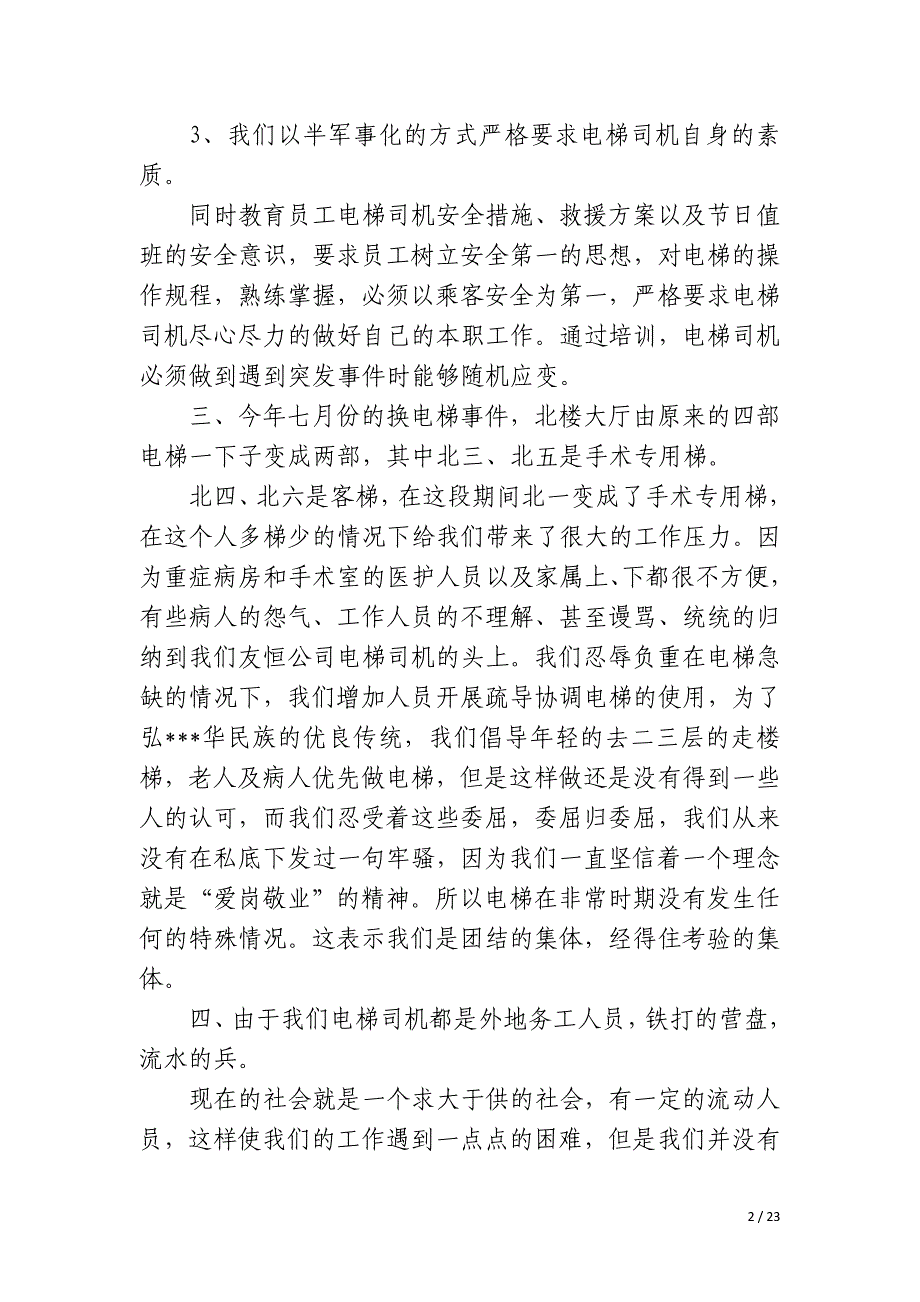 3、我们以半军事化的方式严格要求电梯司机自身的素
质。
同时教育员工电梯司机安全措施、救援方案以及节日值
班的安全意识，要求员工树立安全第一的思想，对电梯的操
作规程，熟练掌握，必须以乘客安全为第一，严格要求电梯
司机尽心尽力的做好自己的本职工作。通过培训，电梯司机
必须做到遇到突发事件时能够随机应变。
三、今年七月份的换电梯事件，北楼大厅由原来的四部
电梯一下子变成两部，其中北三、北五是手术专用梯。
北四、北六是客梯，在这段期间北一变成了手术专用梯，
在这个人多梯少的情况下给我们带来了很大的工作压力。因
为重症病房和手术室的医护人员以及家属上、下都很不方便，
有些病人的怨气、工作人员的不理解、甚至谩骂、统统的归
纳到我们友恒公司电梯司机的头上。我们忍辱负重在电梯急
缺的情况下，我们增加人员开展疏导协调电梯的使用，为了
弘***华民族的优良传统，我们倡导年轻的去二三层的走楼
梯，老人及病人优先做电梯，但是这样做还是没有得到一些
人的认可，而我们忍受着这些委屈，委屈归委屈，我们从来
没有在私底下发过一句牢骚，因为我们一直坚信着一个理念
就是“爱岗敬业”的精神。所以电梯在非常时期没有发生任
何的特殊情况。这表示我们是团结的集体，经得住考验的集
体。
四、由于我们电梯司机都是外地务工人员，铁打的营盘，
流水的兵。
现在的社会就是一个求大于供的社会，有一定的流动人
员，这样使我们的工作遇到一点点的困难，但是我们并没有
2 / 23